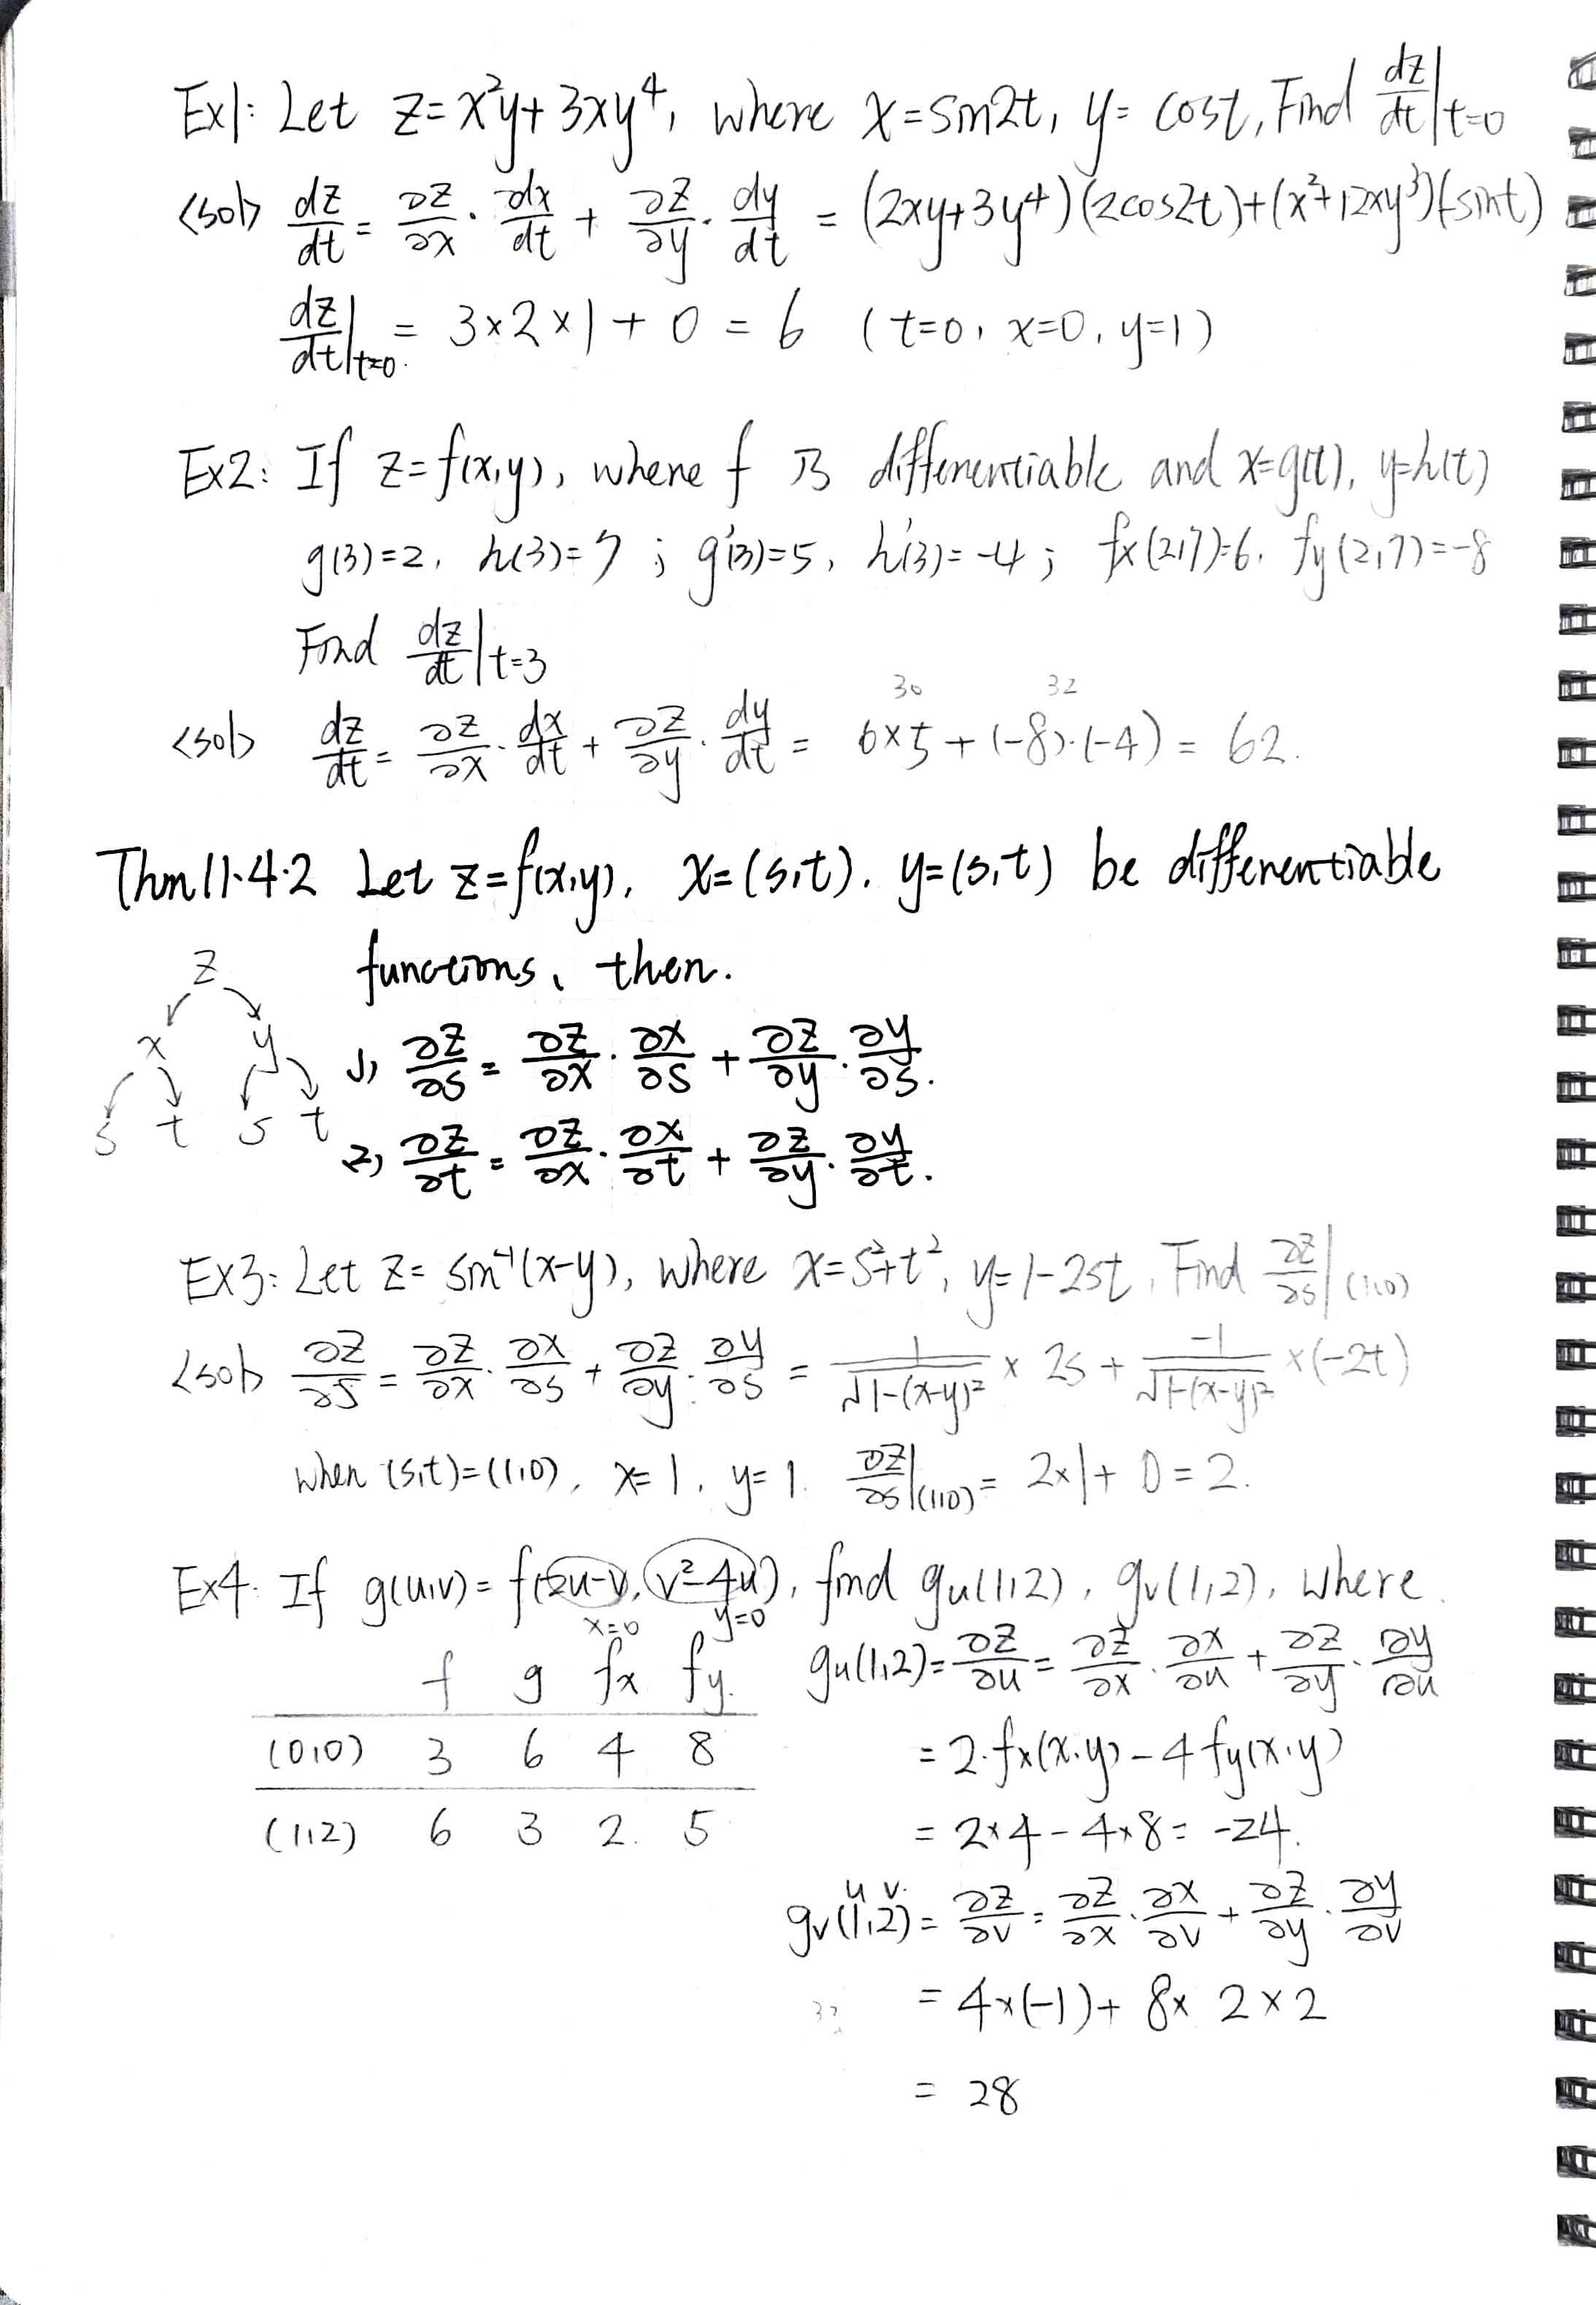 Ex1: Let z=x²y+3xy⁴, where x=sin2t, y=cost, Find dz/dt|t=0
<sol> dz/dt = ∂z/∂x · dx/dt + ∂z/∂y · dy/dt = (2xy+3y⁴)(2cos2t)+(x²+12xy³)(-sint)
dz/dt|t=0. = 3×2×1+0 = 6 (t=0, x=0, y=1)
Ex2: If z=f(x,y), where f is differentiable and x=g(t), y=h(t)
g(3)=2, h(3)=7; g'(3)=5, h'(3)=-4; fx(2,7)=6, fy(2,7)=-8
Find dz/dt|t=3
30 32
<sol> dz/dt = ∂z/∂x · dx/dt + ∂z/∂y · dy/dt = 6×5+(-8)·(-4) = 62.
Thm 11.4.2 Let z=f(x,y), x=(s,t), y=(s,t) be differentiable
functions, then.
z
x y
s t s t
1) ∂z/∂s = ∂z/∂x · ∂x/∂s + ∂z/∂y · ∂y/∂s.
2) ∂z/∂t = ∂z/∂x · ∂x/∂t + ∂z/∂y · ∂y/∂t.
Ex3: Let z= sin⁻¹(x-y), where x=s²+t², y=1-2st, Find ∂z/∂s|(1,0)
<sol> ∂z/∂s = ∂z/∂x · ∂x/∂s + ∂z/∂y · ∂y/∂s = 1/√1-(x-y)² × 2s + -1/√1-(x-y)² ×(-2t)
when (s,t)=(1,0), x=1, y=1. ∂z/∂s|(1,0) = 2×1+0=2.
Ex4: If g(u,v)=f(2u-v, v²-4u), find gu(1,2), gv(1,2), where
x=0 y=0
f g fx fy.
(0,0) 3 6 4 8
(1,2) 6 3 2. 5
gu(1,2)= ∂z/∂u = ∂z/∂x · ∂x/∂u + ∂z/∂y · ∂y/∂u
= 2·fx(x,y)-4fy(x,y)
= 2×4-4×8= -24.
u v.
gv(1,2)= ∂z/∂v = ∂z/∂x · ∂x/∂v + ∂z/∂y · ∂y/∂v
= 4×(-1)+ 8× 2×2
= 28